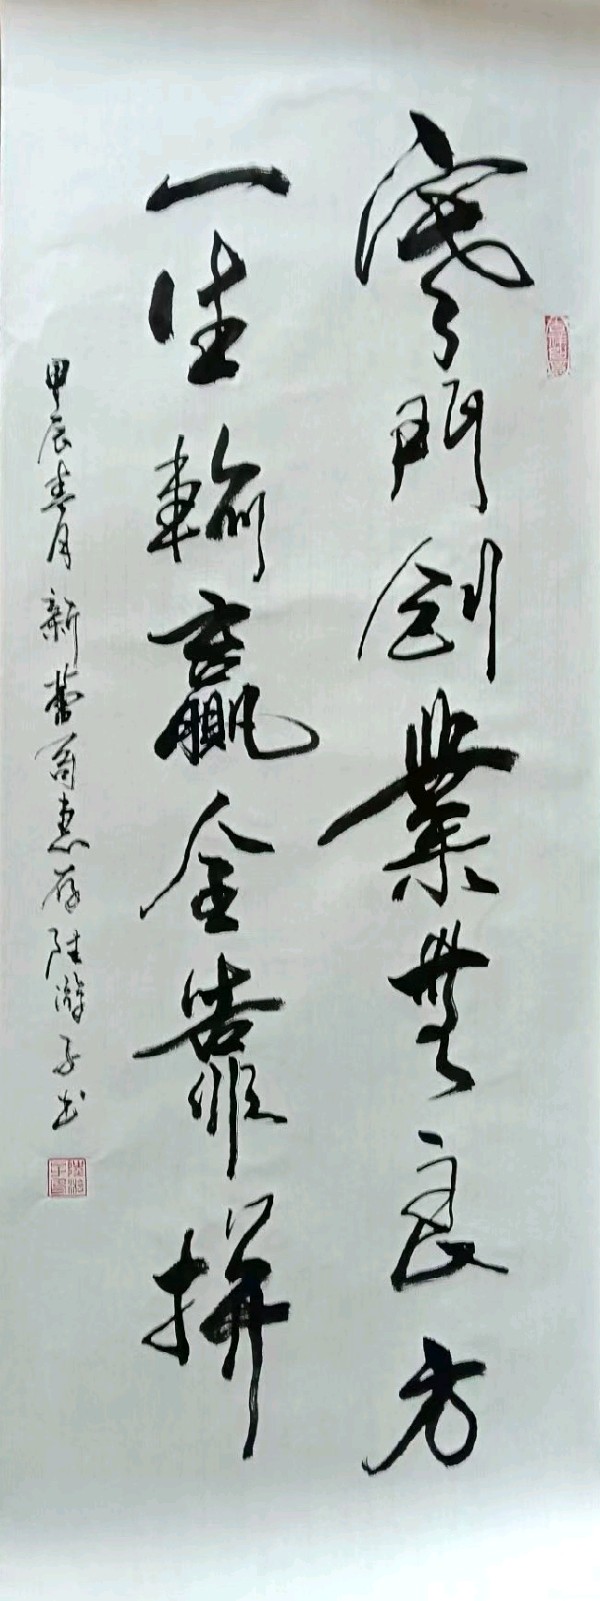 寒門創業無良方
一生輸贏全靠拼
甲辰春月新蕾哥惠存陸游子书